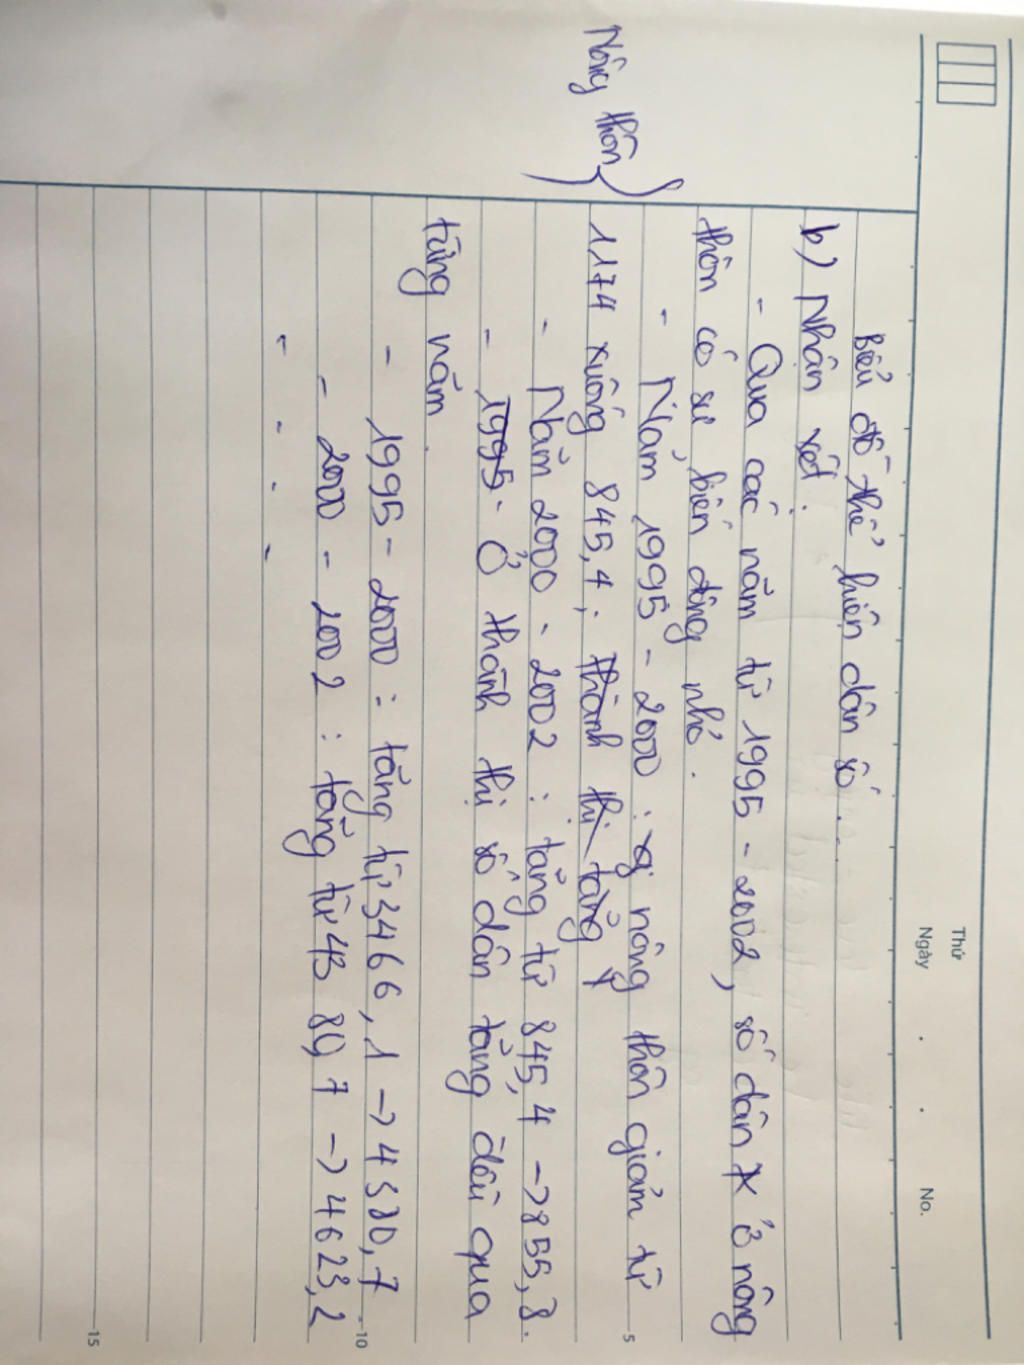 Thứ
Ngày . . No.
Biểu đồ thể hiện dân số ...
b) Nhận xét:
- Qua các năm từ 1995 - 2002, số dân ở nông
thôn có sự biến động nhỏ.
- Năm 1995 - 2000 : nông thôn giảm từ
Nông thôn
1174 xuống 845,4; thành thị tăng
- Năm 2000 - 2002 : tăng từ 845,4 -> 855,8.
- 1995- Ở thành thị số dân tăng đều qua
từng năm.
- 1995 - 2000 : tăng từ 3466,1 -> 4380,7
- 2000 - 2002 : tăng từ 4380,7 -> 4623,2
- - - -
5
10
15